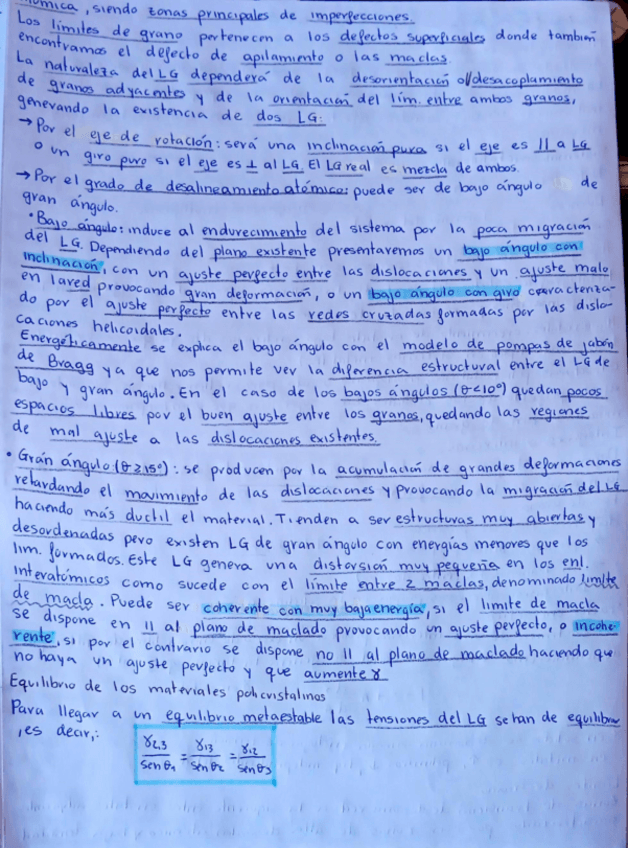 , siendo zonas principales de imperfecciones.
Los límites de grano pertenecen a los defectos superficiales donde también
encontramos el defecto de apilamiento o las maclas.
La naturaleza del LG dependerá de la desorientación o/desacoplamiento
de granos adyacentes y de la orientación del lím. entre ambos granos,
generando la existencia de dos LG:
→ Por el eje de rotación: será una inclinación pura si el eje es || a LG
o un giro puro si el eje es ⊥ al LG. El LG real es mezcla de ambos.
→ Por el grado de desalineamiento atómico: puede ser de bajo ángulo o de
gran ángulo.
• Bajo ángulo: induce al endurecimiento del sistema por la poca migración
del LG. Dependiendo del plano existente presentaremos un bajo ángulo con
inclinación, con un ajuste perfecto entre las dislocaciones y un ajuste malo
en la red provocando gran deformación, o un bajo ángulo con giro caracteriza-
do por el ajuste perfecto entre las redes cruzadas formadas por las dislo-
caciones helicoidales.
Energéticamente se explica el bajo ángulo con el modelo de pompas de jabón
de Bragg ya que nos permite ver la diferencia estructural entre el LG de
bajo y gran ángulo. En el caso de los bajos ángulos (θ<10º) quedan pocos
espacios libres por el buen ajuste entre los granos, quedando las regiones
de mal ajuste a las dislocaciones existentes.
• Gran ángulo (θ≥15º): se producen por la acumulación de grandes deformaciones
retardando el movimiento de las dislocaciones y provocando la migración del LG
haciendo más ductil el material. Tienden a ser estructuras muy abiertas y
desordenadas pero existen LG de gran ángulo con energías menores que los
lim. formados. Este LG genera una distorsión muy pequeña en los enl.
interatómicos como sucede con el límite entre 2 maclas, denominado límite
de macla. Puede ser coherente con muy baja energía, si el limite de macla
se dispone en || al plano de maclado provocando un ajuste perfecto, o incohe-
rente, si por el contrario se dispone no || al plano de maclado haciendo que
no haya un ajuste perfecto y que aumente γ
Equilibrio de los materiales policristalinos
Para llegar a un equilibrio metaestable las tensiones del LG se han de equilibrar
, es decir,:
γ2,3/sen θ1 = γ13/sen θ2 = γ1,2/sen θ3